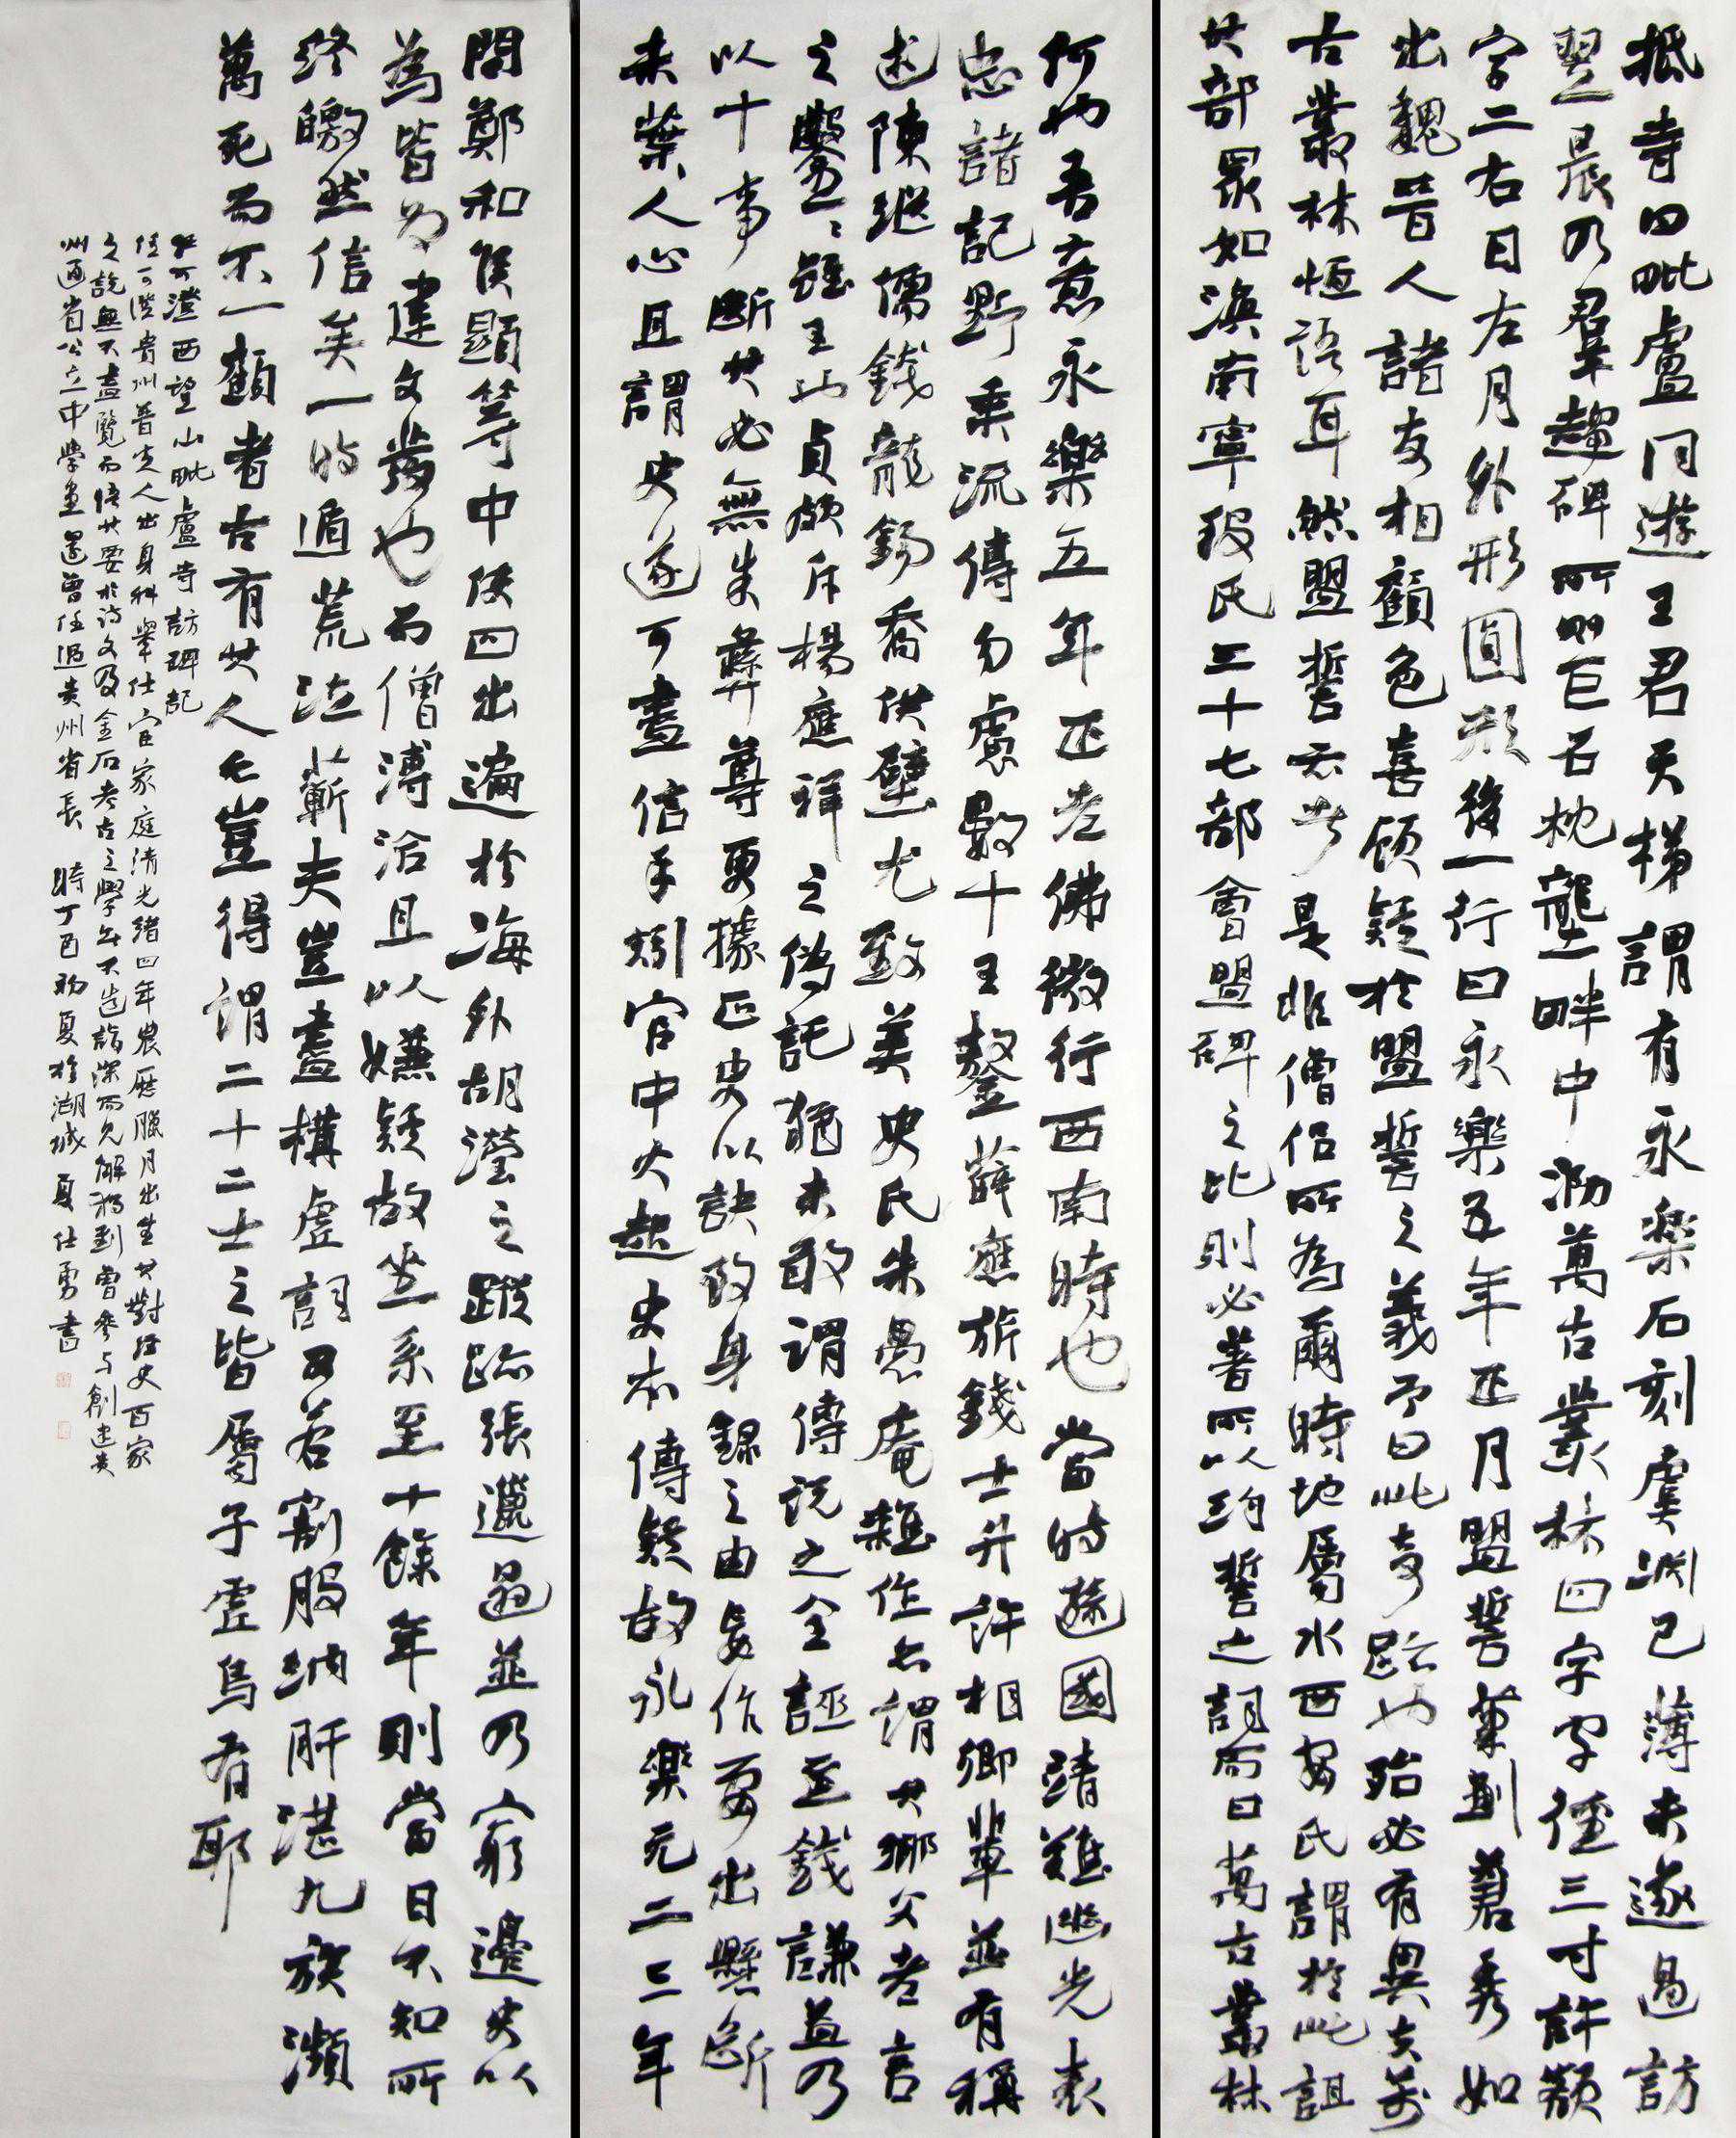 抵寺曰毗盧同遊王君天梯謂有永樂石刻虞淵已薄未遂過訪
翌晨乃羣趨碑所則巨石枕壟畔中泐萬古叢林四字字徑三寸許額
字二右日左月外形圓形後一行曰永樂五年正月盟誓筆劃蒼秀如
出魏晉人諸友相顧色喜顧疑於盟誓之義予曰此奇跡也殆必有異夫萬
古叢林恆語耳然盟誓云者是非僧侶所為爾時地屬水西安氏謂於此詛
其部眾如滇南寧段氏三十七部會盟碑之比則必著所以約誓之詞而曰萬古叢林
何也吾意永樂五年正老佛微行西南時也當時遜國靖難幽光表
忠諸記野乘流傳勿慮數十王鏊薛應旂錢士升許相卿輩並有稱
述陳繼儒錢龍錫喬供璧尤致美史氏朱愚庵雜作亦謂其鄉父老言
之鑿鑿雖王山貞頗斥楊應祥之偽託猶未敢謂傳說之全誣至錢謙益乃
以十事斷其必無朱彝尊更據正史以訣致身錄之由妄作耍出懸斷
未葉人心且謂史遂可盡信乎刻官中火起史亦傳疑故永樂元二三年
間鄭和侯顯等中使四出遍於海外胡濙之蹤跡張邋遢並乃窮邊史以
為皆為建文發也而僧溥洽且以嫌疑故坐系至十餘年則當日不知所
終皦然信矣一時遁荒泣蘄夫豈盡構虛詞又若割股納肝湛九族瀕
萬死而不一顧者古有其人乞豈得謂二十二士之皆屬子虛烏有耶
任可澄西望山毗盧寺訪碑記
任可澄貴州普定人出身科舉仕宦家庭清光緒四年農歷臘月出生其對經史百家
之說無不盡覽而悟其要於詩文及金石考古之學無不造詣深而見解獨到曾參與創建貴
州通省公立中學堂還曾任過貴州省長 時丁酉初夏於湖城夏仕勇書